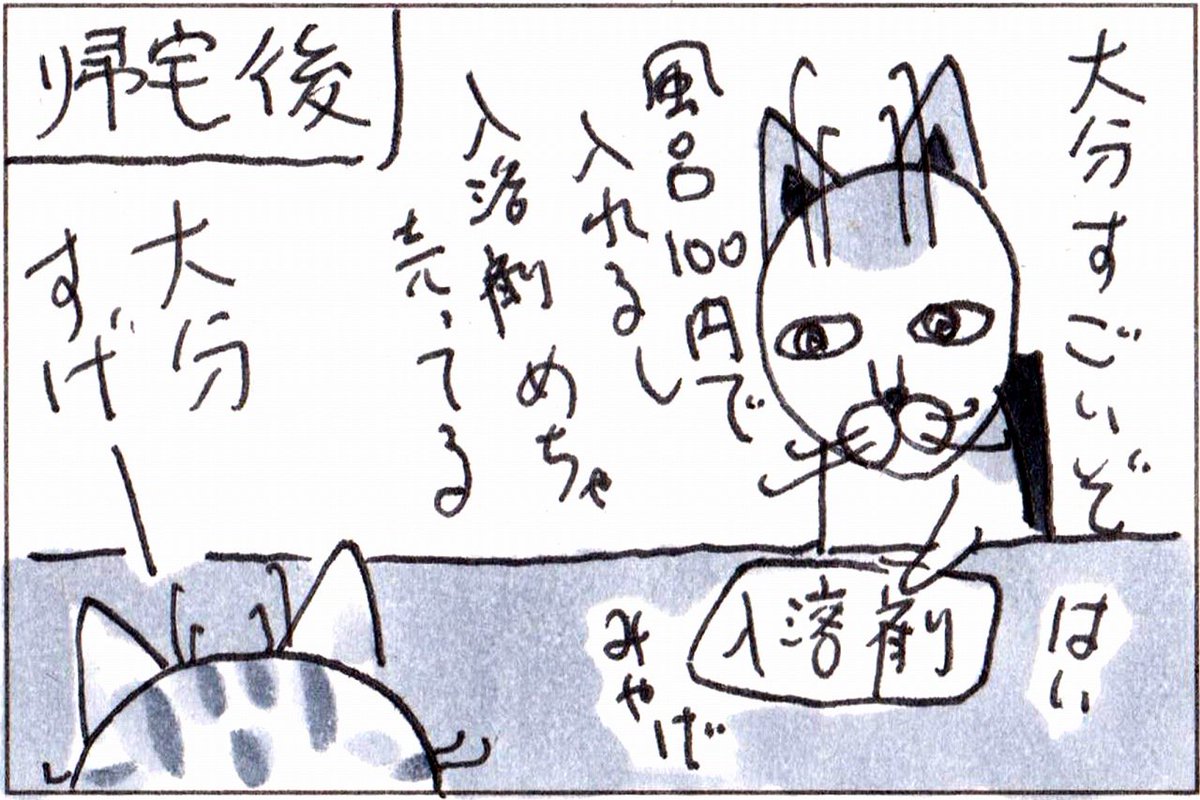 帰宅後
大分すごいぞ
風呂100円で
入れるし
入浴剤めちゃ
売ってる
はい
入浴剤
みやげ
大分
すげー